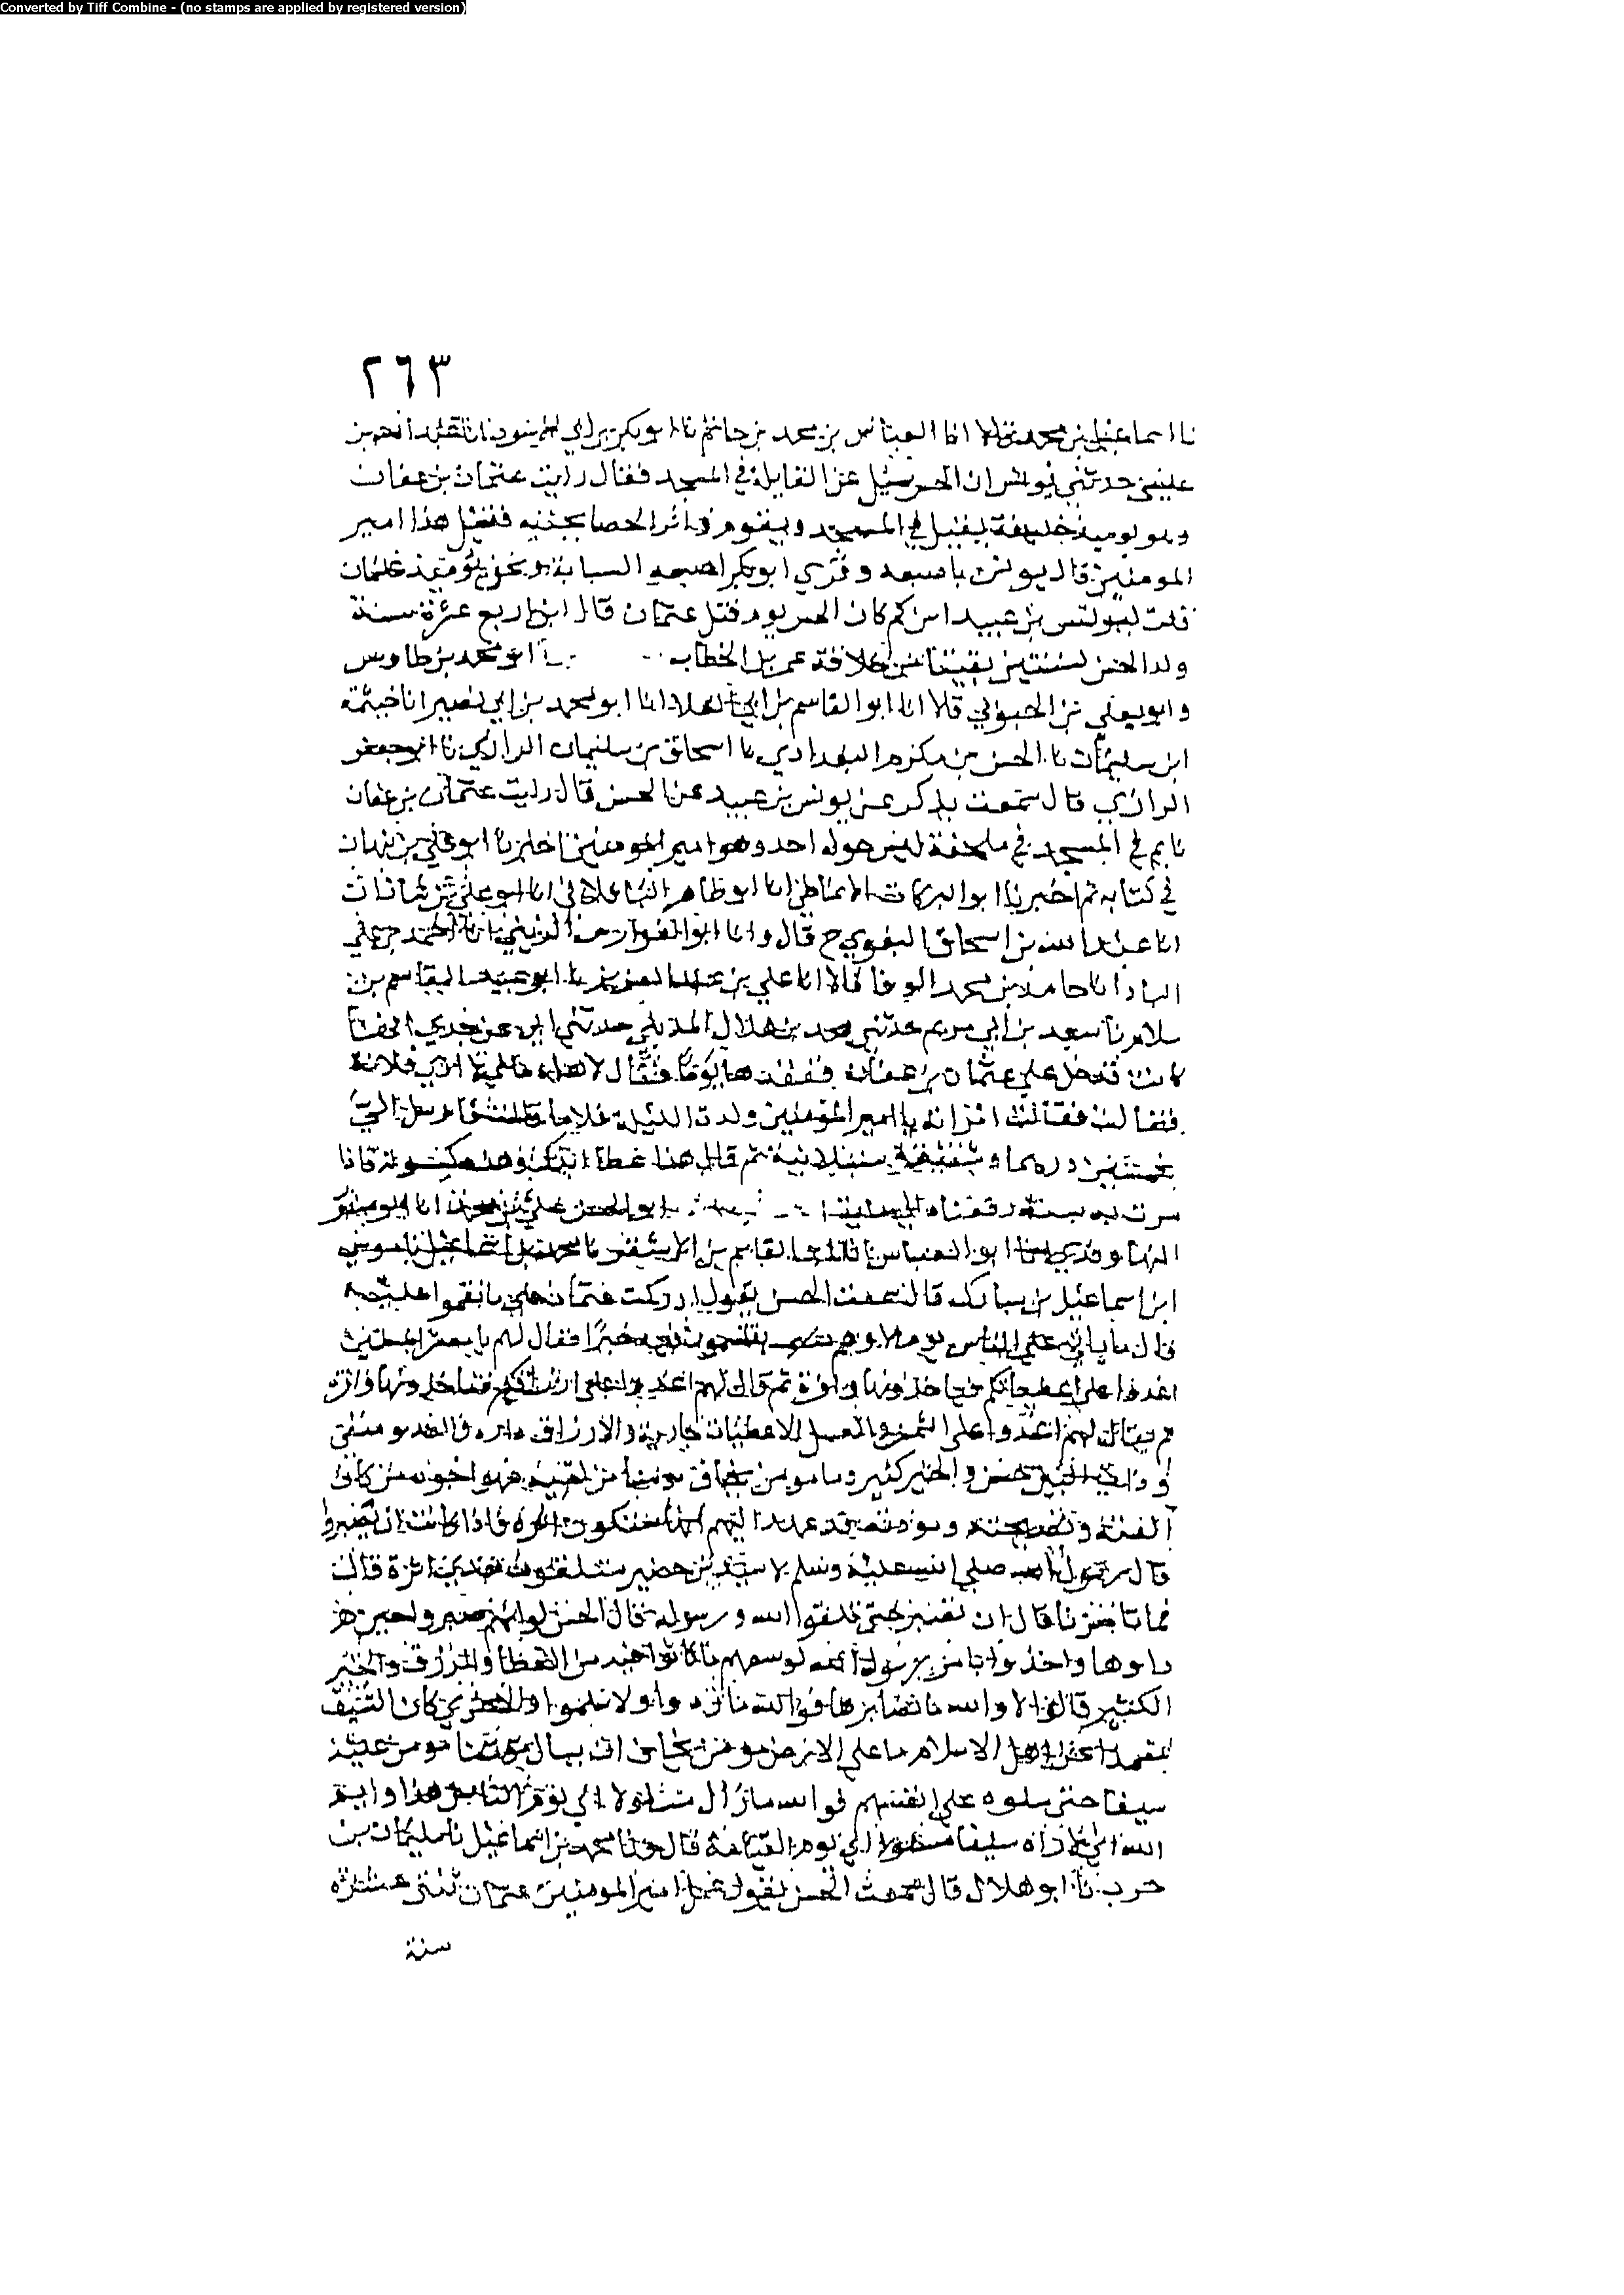 Converted by Tiff Combine - (no stamps are applied by registered version)
٢٦٣
نا اسماعيل بن محمد قالا انا العباس بن محمد بن حاتم نا ابو بكر بن ابي
حدثني يونس ان الحسن سئل عن القايلة في المسجد فقال رايت عثمان بن عفان
وهو يوميذ خليفة يقيل في المسجد ويقوم واثر الحصا بجنبه فنقول هذا امير
المومنين قال يونس باصبعه ابو بكر اصبعه السبابة يوميذ عثمان
قلت ليونس بن عبيد ابن كم كان الحسن يوم قتل عثمان قال ابن اربع عشرة سنة
ولد الحسن لسنتين بقيتا من خلافة عمر بن الخطاب ابو محمد بن طاوس
وابو يعلى بن الحبوبي قالا انا ابو القاسم بن ابي العلا انا ابو محمد بن ابي نصر انا خيثمة
ابن سليمان نا الحسن بن مكرم البغدادي نا اسحاق بن سليمان الرازي نا ابو جعفر
الرازي قال سمعت يذكر عن يونس بن عبيد عن الحسن قال رايت عثمان بن عفان
نايم في المسجد في ملحفة ليس حوله احد وهو امير المومنين اخبرنا ابو علي بن نبهان
في كتابه ثم اخبرنا ابو البركات الانماطي انا ابو طاهر الباقلاني انا ابو علي بن شاذان
انا عبد الله بن اسحاق البغوي ح قال وانا ابو الفوارس الزينبي انا احمد بن علي
البادا انا حامد بن محمد قالا انا علي بن عبد العزيز نا ابو عبيد القاسم بن
سلام نا سعيد بن ابي مريم حدثني محمد بن هلال المديني حدثني ابي عن جدتي انها
كانت تدخل على عثمان بن عفان ففقدها يوما فقال لاهله مالي لا ارى فلانة
فقالت امراته يا امير المومنين ولدت الليلة غلاما فارسل الي
بخمسين درهما وشقيقة سنبلانية ثم قال هذا عطا ابنك وهذه كسوته فاذا
مرت به سنة رفعناه الى ابو الحسن علي بن محمد انا ابو منصور
النهاوندي انا ابو العباس نا القاسم بن الاشقر نا محمد بن اسماعيل نا موسى
ابن اسماعيل مبارك قال سمعت الحسن يقول ادركت عثمان على ما نقموا عليه
قال ما ياتي على الناس يوم الا وهم يقتسمون فيه خيرا فقال لهم يا معشر المسلمين
اغدوا على اعطياتكم فياخذونها وافرة ثم قال لهم اغدوا على ارزاقكم فياخذونها وافرة
ثم يقال لهم اغدوا على السمن والعسل الاعطيات جارية والارزاق دارة والعدو متقى
وذات البين حسن والخير كثير وما مومن يخاف مومنا من لقيه فهو اخوه من كان
الفته ونصيحته ومودته قد عهد اليهم انها ستكون اثرة فاذا كانت ان يصبروا
قال رسول الله صلى الله عليه وسلم لاسيد بن حضير ستلقون بعدي اثرة قال
فما تامرنا قال ان تصبر حتى تلقوا الله ورسوله قال الحسن لو انهم صبروا حين
راوها واخذوا بامر رسول الله لوسعهم ما كانوا فيه من العطا والرزق والخير
الكثير قالوا لا والله ما نصابرها فوالله ما ردوا ولا سلموا والاخرى كان السيف
مغمدا عن اهل الاسلام ما على الارض مومن يخاف ان يسل مومن عليه
سيفا حتى سلوه على انفسهم فوالله ما زال مسلولا الى يوم الناس هذا وايم
الله اني لاراه سيفا مسلولا الى يوم القيامة قال ونا محمد بن اسماعيل نا سليمان بن
حرب نا ابو هلال قال سمعت الحسن يقول عمل امير المومنين عثمان ثنتي عشرة
سنة